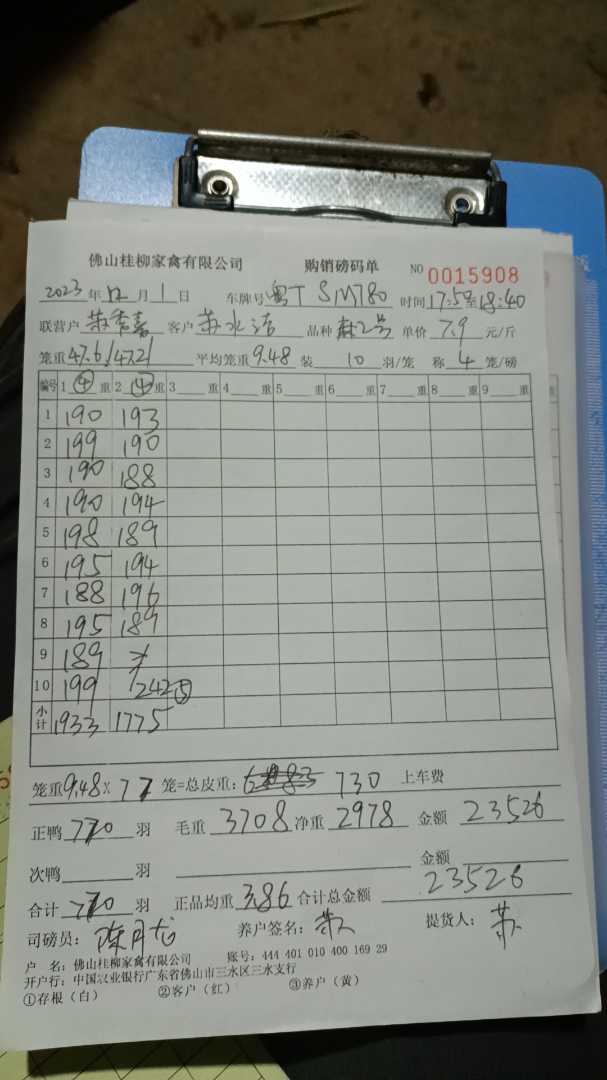 佛山桂柳家禽有限公司 购销磅码单 NO 0015908
2023 年 12 月 1 日 车牌号 粤T SM780 时间 17:58-18:40
联营户 客户 品种 麻2号 单价 7.9 元/斤
笼重 47.6/47.21 平均笼重 9.48 装 10 羽/笼 称 4 笼/磅
编号 1 ④ 重 2 ④ 重 3 重 4 重 5 重 6 重 7 重 8 重 9 重
1 190 193
2 199 190
3 190 188
4 190 194
5 198 189
6 195 194
7 188 196
8 195 189
9 189
10 199 242⑤
小计 1933 1775
笼重 9.48 × 77 笼=总皮重: 730 上车费
正鸭 770 羽 毛重 3708 净重 2978 金额 23526
次鸭 羽 金额
合计 770 羽 正品均重 3.86 合计总金额 23526
司磅员: 陈月龙 养户签名: 提货人:
户 名: 佛山桂柳家禽有限公司 账号: 444 401 010 400 169 29
开户行: 中国农业银行广东省佛山市三水区三水支行
①存根(白) ②客户(红) ③养户(黄)